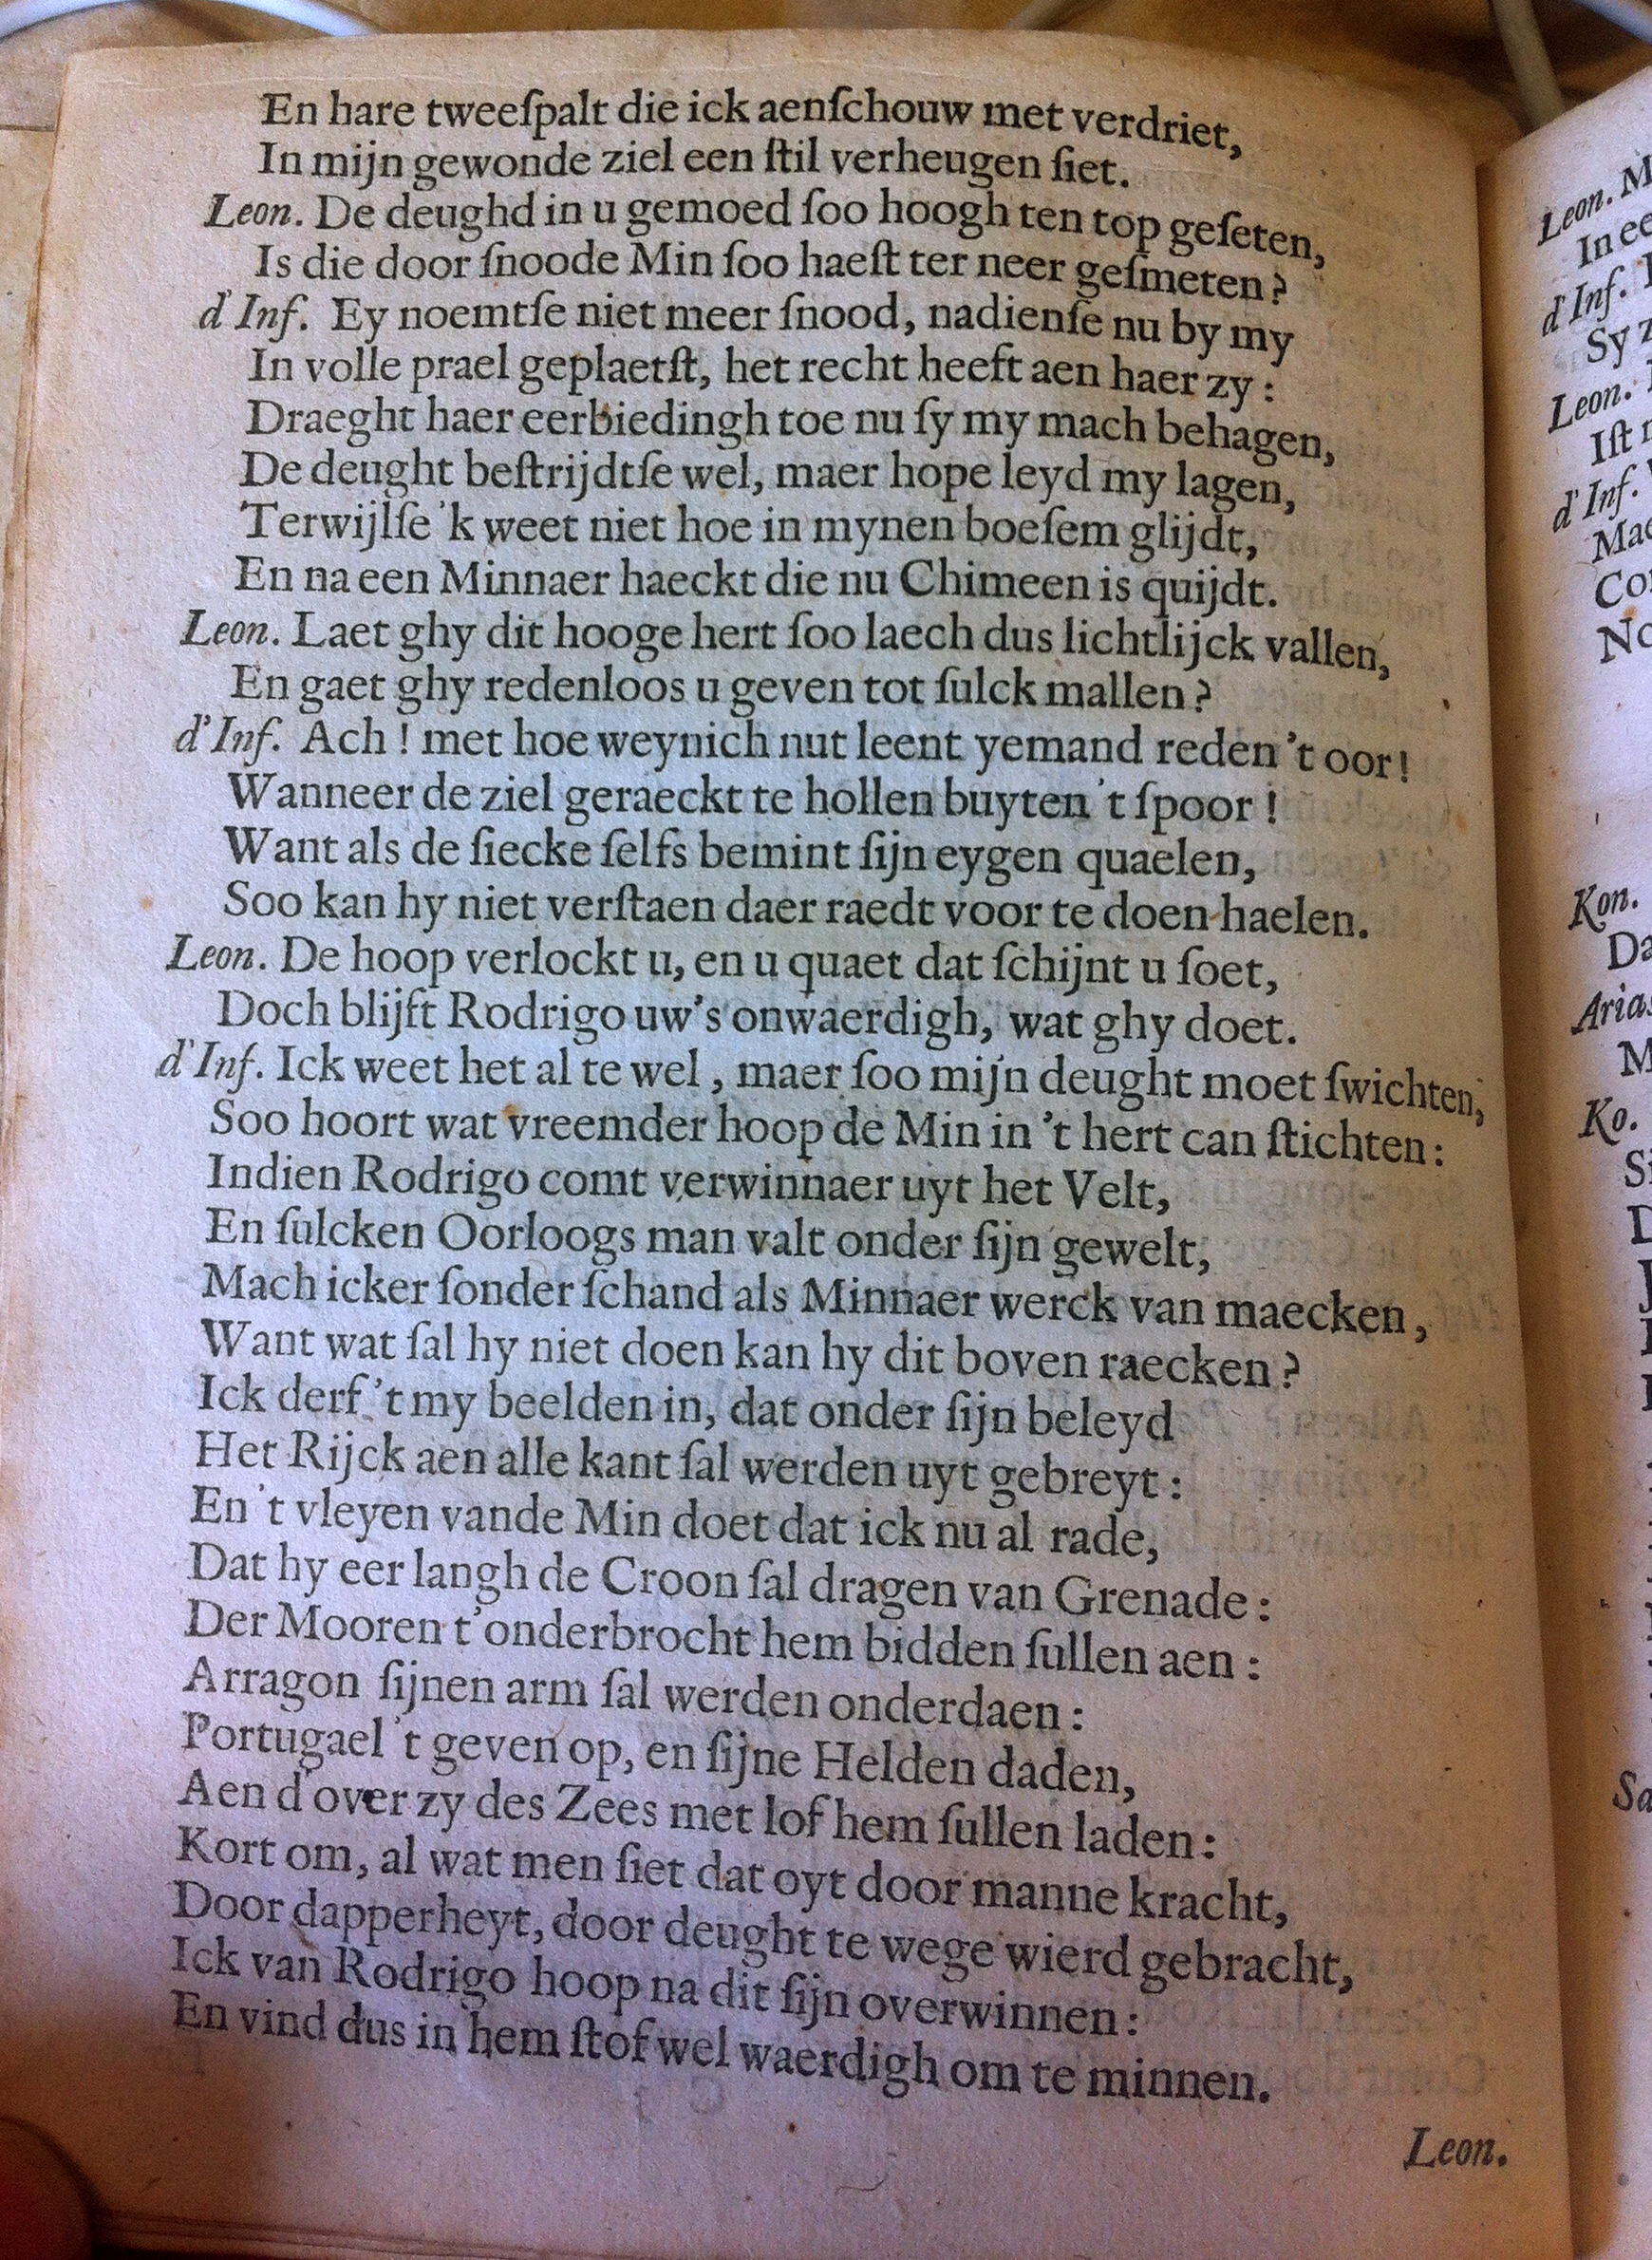 En hare tweeſpalt die ick aenſchouw met verdriet,
In mijn gewonde ziel een ſtil verheugen ſiet.
Leon. De deughd in u gemoed ſoo hoogh ten top geſeten,
Is die door ſnoode Min ſoo haeſt ter neer geſmeten?
d'Inf. Ey noemtſe niet meer ſnood, nadienſe nu by my
In volle prael geplaetſt, het recht heeft aen haer zy:
Draeght haer eerbiedingh toe nu ſy my mach behagen,
De deught beſtrijdtſe wel, maer hope leyd my lagen,
Terwijlſe 'k weet niet hoe in mynen boeſem glijdt,
En na een Minnaer haeckt die nu Chimeen is quijdt.
Leon. Laet ghy dit hooge hert ſoo laech dus lichtlijck vallen,
En gaet ghy redenloos u geven tot ſulck mallen?
d'Inf. Ach! met hoe weynich nut leent yemand reden 't oor!
Wanneer de ziel geraeckt te hollen buyten 't ſpoor!
Want als de ſiecke ſelfs bemint ſijn eygen quaelen,
Soo kan hy niet verſtaen daer raedt voor te doen haelen.
Leon. De hoop verlockt u, en u quaet dat ſchijnt u ſoet,
Doch blijft Rodrigo uw's onwaerdigh, wat ghy doet.
d'Inf. Ick weet het al te wel, maer ſoo mijn deught moet ſwichten,
Soo hoort wat vreemder hoop de Min in 't hert can ſtichten:
Indien Rodrigo comt verwinnaer uyt het Velt,
En ſulcken Oorloogs man valt onder ſijn gewelt,
Mach icker ſonder ſchand als Minnaer werck van maecken,
Want wat ſal hy niet doen kan hy dit boven raecken?
Ick derf 't my beelden in, dat onder ſijn beleyd
Het Rijck aen alle kant ſal werden uyt gebreyt:
En 't vleyen vande Min doet dat ick nu al rade,
Dat hy eer langh de Croon ſal dragen van Grenade:
Der Mooren t'onderbrocht hem bidden ſullen aen:
Arragon ſijnen arm ſal werden onderdaen:
Portugael 't geven op, en ſijne Helden daden,
Aen d'over zy des Zees met lof hem ſullen laden:
Kort om, al wat men ſiet dat oyt door manne kracht,
Door dapperheyt, door deught te wege wierd gebracht,
Ick van Rodrigo hoop na dit ſijn overwinnen:
En vind dus in hem ſtof wel waerdigh om te minnen.
Leon.
Leon. M
In ee
d'Inf.
Sy z
Leon.
Iſt
d'Inf.
Mae
Co
No
Kon.
Da
Arias
M
Ko.